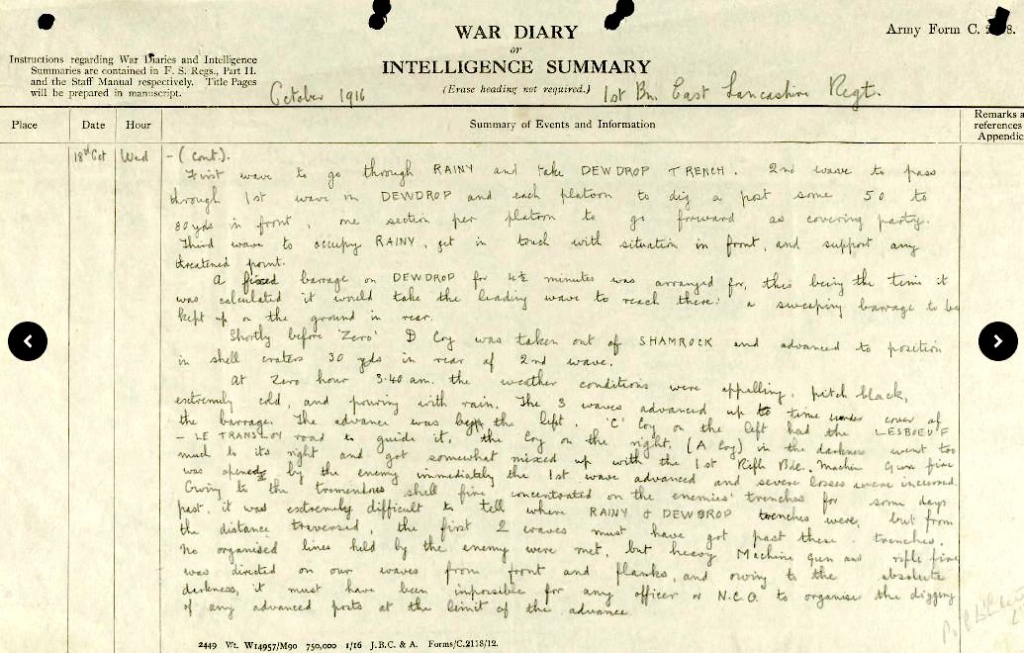 WAR DIARY
or
INTELLIGENCE SUMMARY
(Erase heading not required.)
Army Form C.
Instructions regarding War Diaries and Intelligence
Summaries are contained in F. S. Regs., Part II.
and the Staff Manual respectively. Title Pages
will be prepared in manuscript.
October 1916
1st Bn. East Lancashire Regt.
Place Date Hour Summary of Events and Information Remarks a
references
Appendic
18th Oct Wed - (cont.).
First wave to go through RAINY and take DEWDROP TRENCH. 2nd wave to pass
through 1st wave in DEWDROP and each platoon to dig a post some 50 to
80 yds in front, one section per platoon to go forward as covering party.
Third wave to occupy RAINY, get in touch with situation in front, and support any
threatened point.
A fixed barrage on DEWDROP for 4½ minutes was arranged for, this being the time it
was calculated it would take the leading wave to reach there: a sweeping barrage to be
kept up on the ground in rear.
Shortly before 'Zero' D Coy was taken out of SHAMROCK and advanced to position
in shell craters 30 yds in rear of 2nd wave.
At Zero hour 3.40 am. the weather conditions were appalling, pitch black,
extremely cold, and pouring with rain. The 3 waves advanced up to time under cover of
the barrage. The advance was by the left. 'C' Coy on the left had the LESBOEUF
- LE TRANSLOY road to guide it, the Coy on the right, (A Coy) in the darkness went too
much to its right and got somewhat mixed up with the 1st Rifle Bde. Machine Gun fire
was opened by the enemy immediately the 1st wave advanced and severe losses were incurred
Owing to the tremendous shell fire concentrated on the enemies' trenches for some days
past, it was extremely difficult to tell where RAINY & DEWDROP trenches were, but from
the distance traversed, the first 2 waves must have got past these trenches.
No organised lines held by the enemy were met, but heavy Machine Gun and rifle fire
was directed on our waves from front and flanks, and owing to the absolute
darkness, it must have been impossible for any officer or N.C.O. to organise the digging
of any advanced posts at the limit of the advance.
2449 Wt. W14957/M90 750,000 1/16 J.B.C. & A. Forms/C.2118/12.